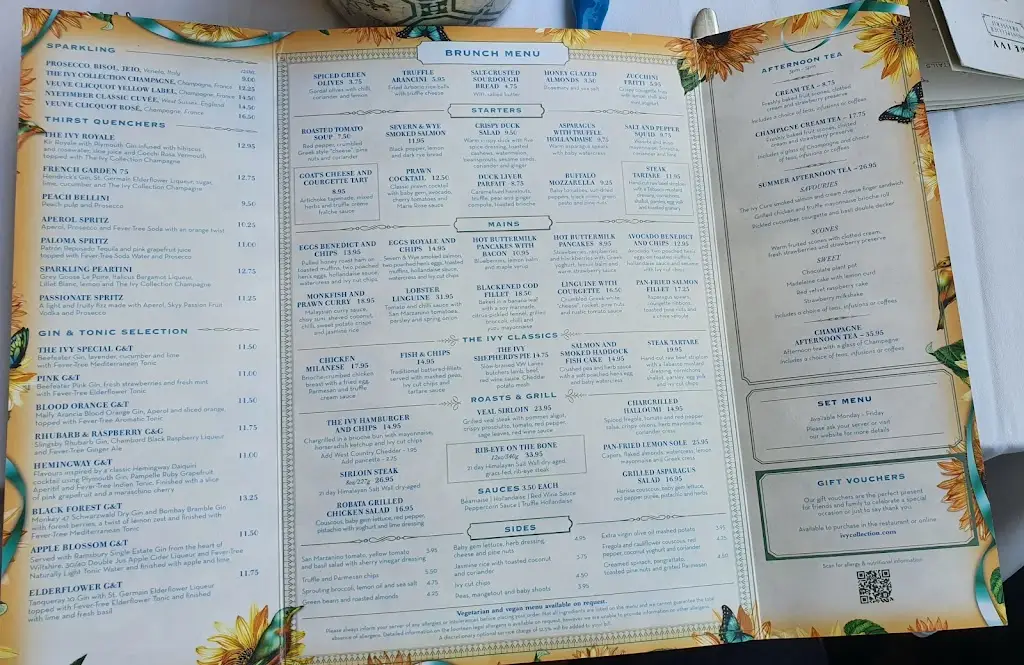 SPARKLING
PROSECCO, BISOL, JEIO, Veneto, Italy
THE IVY COLLECTION CHAMPAGNE, Champagne, France
VEUVE CLICQUOT YELLOW LABEL, Champagne, France 12.25
NYETIMBER CLASSIC CUVÉE, West Sussex, England 14.50
VEUVE CLICQUOT ROSÉ, Champagne, France 14.50
16.50
THIRST QUENCHERS
THE IVY ROYALE 12.95
Kir Royale with Plymouth Gin infused with hibiscus
and rosewater, sloe juice and Cocchi Rosa Vermouth
topped with The Ivy Collection Champagne
FRENCH GARDEN 75 12.75
Hendrick's Gin, St. Germain Elderflower Liqueur, sugar,
lime, cucumber and The Ivy Collection Champagne
PEACH BELLINI 9.50
Peach pulp and Prosecco
APEROL SPRITZ 10.25
Aperol, Prosecco and Fever-Tree Soda with an orange twist
PALOMA SPRITZ 11.00
Patrón Reposado Tequila and pink grapefruit juice
topped with Fever-Tree Soda Water and Prosecco
SPARKLING PEARTINI 12.75
Grey Goose La Poire, Italicus Bergamot Liqueur,
Lillet Blanc, lemon and The Ivy Collection Champagne
PASSIONATE SPRITZ 11.25
A light and fruity fizz made with Aperol, Skyy Passion Fruit
Vodka and Prosecco
GIN & TONIC SELECTION
THE IVY SPECIAL G&T 11.50
Beefeater Gin, lavender, cucumber and lime
with Fever-Tree Mediterranean Tonic
PINK G&T 11.00
Beefeater Pink Gin, fresh strawberries and fresh mint
with Fever-Tree Elderflower Tonic
BLOOD ORANGE G&T 11.50
Malfy Arancia Blood Orange Gin, Aperol and sliced orange,
topped with Fever-Tree Aromatic Tonic
RHUBARB & RASPBERRY G&G 11.75
Slingsby Rhubarb Gin, Chambord Black Raspberry Liqueur
and Fever-Tree Ginger Ale
HEMINGWAY G&T 11.00
Flavours inspired by a classic Hemingway Daiquiri
cocktail using Plymouth Gin, Pampelle Ruby Grapefruit
Aperitif and Fever-Tree Indian Tonic. Finished with a slice
of pink grapefruit and a maraschino cherry
BLACK FOREST G&T 13.25
Monkey 47 Schwarzwald Dry Gin and Bombay Bramble Gin
with forest berries, a twist of lemon zest and finished with
Fever-Tree Mediterranean Tonic
APPLE BLOSSOM G&T 11.50
Served with Ramsbury Single Estate Gin from the heart of
Wiltshire, 30/40 Double Jus Apple Cider Liqueur and Fever-Tree
Naturally Light Tonic Water and finished with apple and lime
ELDERFLOWER G&T 11.75
Tanqueray 10 Gin with St. Germain Elderflower Liqueur
topped with Fever-Tree Elderflower Tonic and finished
with lime and fresh basil
BRUNCH MENU
SPICED GREEN
OLIVES 3.75
Gordal olives with chilli,
coriander and lemon
TRUFFLE
ARANCINI 5.95
Fried Arborio rice balls
with truffle cheese
SALT-CRUSTED
SOURDOUGH
BREAD 4.75
With salted butter
HONEY GLAZED
ALMONDS 3.50
Rosemary and sea salt
ZUCCHINI
FRITTI 5.95
Crispy courgette fries
with lemon, chilli and
mint yoghurt
STARTERS
ROASTED TOMATO
SOUP 7.50
Red pepper, crumbled
Greek style "cheese", pine
nuts and coriander
SEVERN & WYE
SMOKED SALMON
11.95
Black pepper, lemon
and dark rye bread
CRISPY DUCK
SALAD 9.50
Warm crispy duck with five
spice dressing, toasted
cashews, watermelon,
beansprouts, sesame seeds,
coriander and ginger
ASPARAGUS
WITH TRUFFLE
HOLLANDAISE 8.75
Warm asparagus spears
with baby watercress
SALT AND PEPPER
SQUID 8.75
GOAT'S CHEESE AND
COURGETTE TART
8.95
Artichoke tapenade, mixed
herbs and truffle crème
fraîche sauce
PRAWN
COCKTAIL 12.50
Classic prawn cocktail
with baby gem, avocado,
cherry tomatoes and
Marie Rose sauce
DUCK LIVER
PARFAIT 8.75
Caramelised hazelnuts,
truffle, pear and ginger
compote, toasted brioche
BUFFALO
MOZZARELLA 9.25
STEAK
TARTARE 11.95
MAINS
EGGS BENEDICT AND
CHIPS 13.95
Pulled honey roast ham on
toasted muffins, two poached
hen's eggs, hollandaise sauce,
watercress and Ivy cut chips
EGGS ROYALE AND
CHIPS 14.95
Severn & Wye smoked salmon,
two poached hen's eggs, toasted
muffins, hollandaise sauce,
watercress and Ivy cut chips
HOT BUTTERMILK
PANCAKES WITH
BACON 10.95
Blueberries, lemon balm
and maple syrup
HOT BUTTERMILK
PANCAKES 8.95
AVOCADO BENEDICT
AND CHIPS 12.95
MONKFISH AND
PRAWN CURRY 18.95
Malaysian curry sauce,
choy sum, shaved coconut,
chilli, sweet potato crisps
and jasmine rice
LOBSTER
LINGUINE 31.95
Tomato and chilli sauce with
San Marzanino tomatoes,
parsley and spring onion
BLACKENED COD
FILLET 18.50
Baked in a banana leaf
with a soy marinade,
citrus-pickled fennel, grilled
broccoli, chilli and
yuzu mayonnaise
LINGUINE WITH
COURGETTE 16.50
PAN-FRIED SALMON
FILLET 17.25
THE IVY CLASSICS
CHICKEN
MILANESE 17.95
Brioche-crumbed chicken
breast with a fried egg,
Parmesan and truffle
cream sauce
FISH & CHIPS
14.95
Traditional battered fillets
served with mashed peas,
Ivy cut chips and
tartare sauce
THE IVY
SHEPHERD'S PIE 14.75
Slow-braised lamb
shoulder, beef,
red wine sauce, Cheddar
potato mash
SALMON AND
SMOKED HADDOCK
FISH CAKE 14.95
Crushed pea and herb sauce
with a soft poached hen's egg
and baby watercress
STEAK TARTARE
19.95
ROASTS & GRILL
THE IVY HAMBURGER
AND CHIPS 14.95
Chargrilled in a brioche bun with mayonnaise,
horseradish ketchup and Ivy cut chips
Add West Country Cheddar - 1.95
Add pancetta - 2.75
SIRLOIN STEAK
8oz/227g 26.95
21 day Himalayan Salt Wall dry-aged
ROBATA GRILLED
CHICKEN SALAD 16.95
Couscous, baby gem lettuce, red pepper,
pistachio with yoghurt and lime dressing
VEAL SIRLOIN 23.95
Grilled veal steak with pommes aligot,
crispy prosciutto, tomato, red pepper,
sage leaves, red wine sauce
RIB-EYE ON THE BONE
12oz/340g 33.95
21 day Himalayan Salt Wall dry-aged,
grass-fed, rib-eye steak
SAUCES 3.50 EACH
Béarnaise | Hollandaise | Red Wine Sauce
Peppercorn Sauce | Truffle Hollandaise
CHARGRILLED
HALLOUMI 14.95
PAN-FRIED LEMON SOLE 25.95
GRILLED ASPARAGUS
SALAD 16.95
SIDES
San Marzanino tomato, yellow tomato
and basil salad with sherry vinegar dressing 3.95
Truffle and Parmesan chips 5.50
Sprouting broccoli, lemon oil and sea salt 4.75
Green beans and roasted almonds 4.25
Baby gem lettuce, herb dressing,
cheese and pine nuts 4.95
Jasmine rice with toasted coconut
and coriander
Ivy cut chips 4.50
Peas, mangetout and baby shoots 3.95
Extra virgin olive oil mashed potato 3.95
Fregola and cauliflower couscous, red
pepper, coconut yoghurt and coriander
Creamed spinach, pangrattato,
toasted pine nuts and grated Parmesan 4.50
Vegetarian and vegan menu available on request.
Please always inform your server of any allergies or intolerances before placing your order. Not all ingredients are listed on the menu and we cannot guarantee the total
absence of allergens. Detailed information on the fourteen legal allergens is available on request, however we are unable to provide information on other allergens.
A discretionary optional service charge of 12.5% will be added to your bill.
AFTERNOON TEA
3pm - 5pm
CREAM TEA – 8.75
Freshly baked fruit scones, clotted
cream and strawberry preserve
Includes a choice of teas, infusions or coffees
CHAMPAGNE CREAM TEA – 17.75
Includes a glass of Champagne and a choice
of teas, infusions or coffees
SUMMER AFTERNOON TEA – 26.95
SAVOURIES
The Ivy Cure smoked salmon and cream cheese finger sandwich
Grilled chicken and truffle mayonnaise brioche roll
Pickled cucumber, courgette and basil double decker
SCONES
Warm fruited scones with clotted cream,
fresh strawberries and strawberry preserve
SWEET
Chocolate plant pot
Madeleine cake with lemon curd
Red velvet raspberry cake
Strawberry milkshake
Includes a choice of teas, infusions or coffees
CHAMPAGNE
AFTERNOON TEA – 35.95
Afternoon tea with a glass of Champagne
includes a choice of teas, infusions or coffees
SET MENU
Available Monday - Friday
Please ask your server or visit
our website for more details
GIFT VOUCHERS
Our gift vouchers are the perfect present
for friends and family to celebrate a special
occasion or just to say thank you
Available to purchase in the restaurant or online
ivycollection.com
Scan for allergy & nutritional information